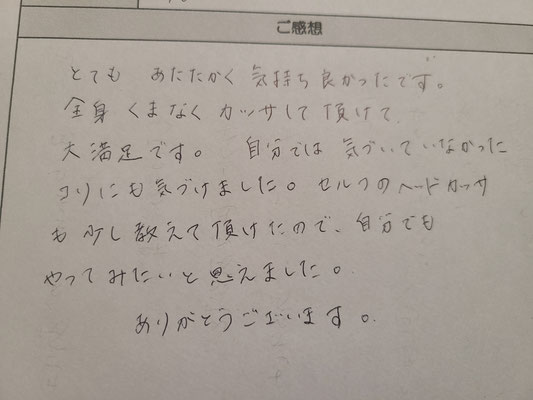 ご感想
とても あたたかく 気持ち良かったです。
全身 くまなく カッサして頂けて
大満足です。 自分では 気づいていなかった
コリにも気づけました。セルフのヘッドカッサ
も少し教えて頂けたので、自分でも
やってみたいと思えました。
ありがとうございます。